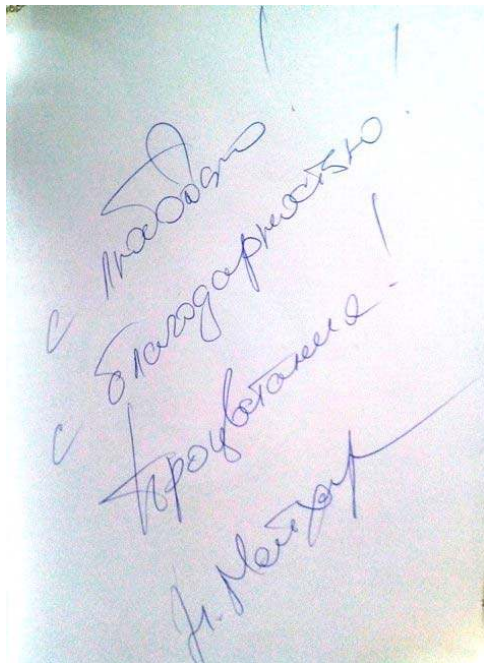 с любовью!
с благодарностью!
Процветания!